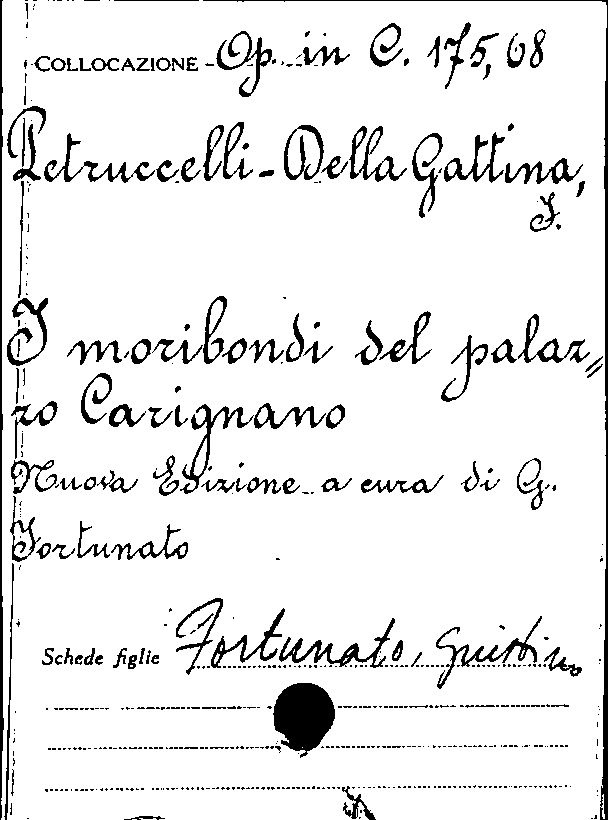 COLLOCAZIONE - Op. in C. 175, 68
Petruccelli-Della Gattina,
F.
I moribondi del palaz„
zo Carignano
Nuova Edizione a cura di G.
Fortunato
Schede figlie Fortunato, Giustino